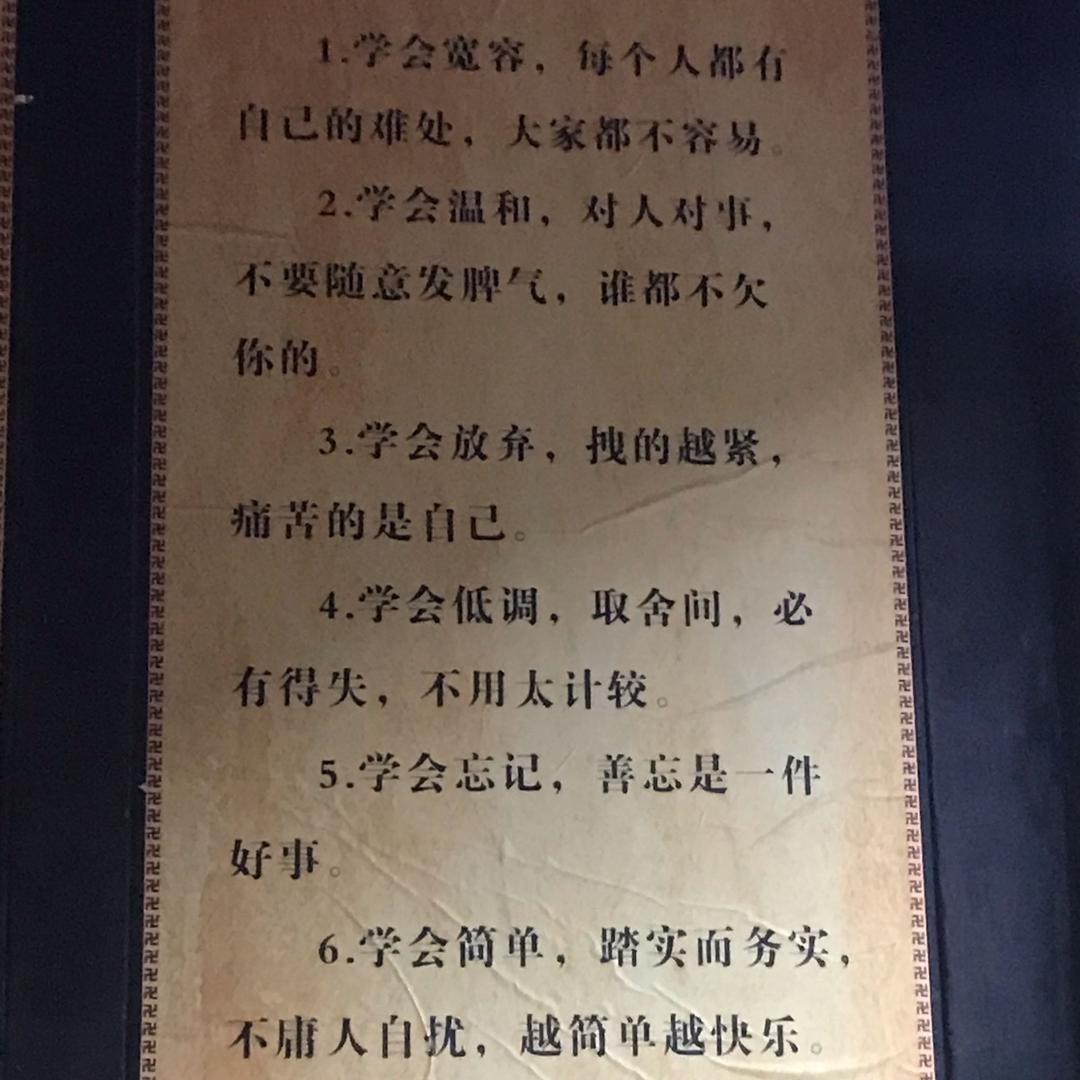 1.学会宽容，每个人都有
自己的难处，大家都不容易。
2.学会温和，对人对事，
不要随意发脾气，谁都不欠
你的。
3.学会放弃，拽的越紧，
痛苦的是自己。
4.学会低调，取舍间，必
有得失，不用太计较。
5.学会忘记，善忘是一件
好事。
6.学会简单，踏实而务实，
不庸人自扰，越简单越快乐。